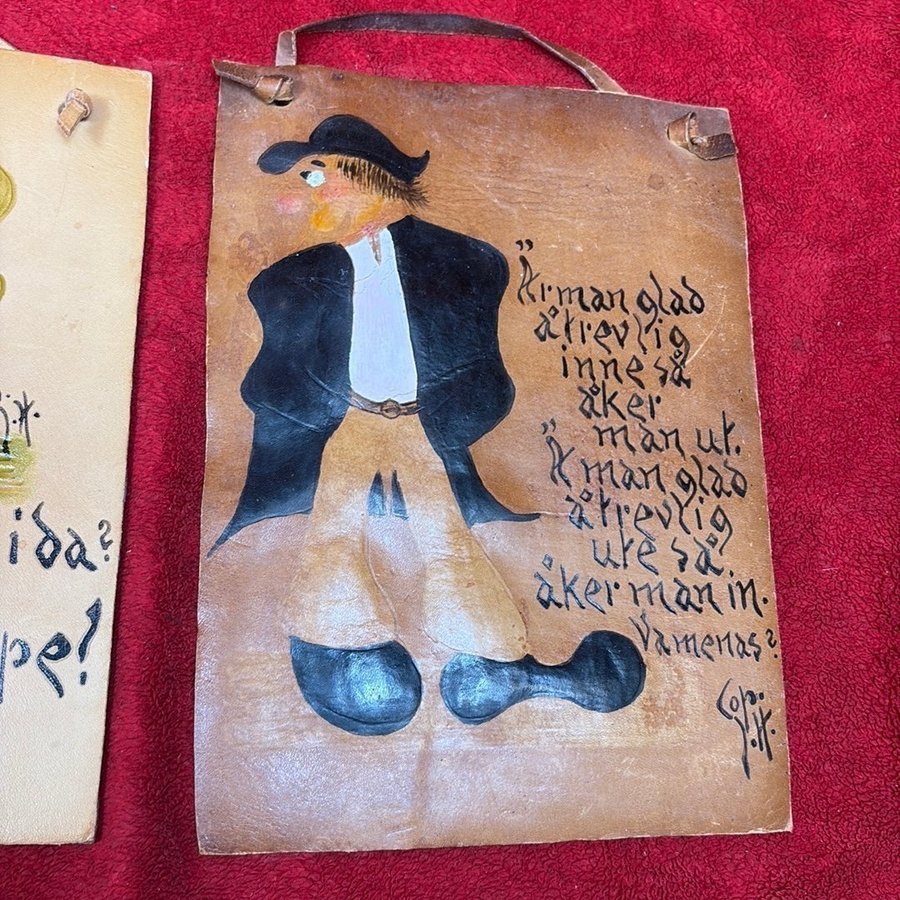 S.H.
ida?
pe!
"Är man glad
å trevlig
inne så
åker
man ut.
"Ä man glad
å trevlig
ute så
åker man in.
Vamenas?
Cop.
Y.H.